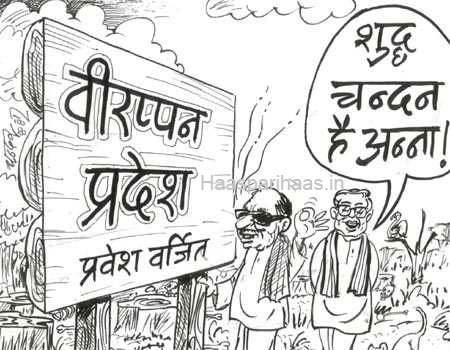 वीरप्पन
प्रदेश
प्रवेश वर्जित
शुद्ध
चन्दन
है अन्ना!
Haasparihaas.in